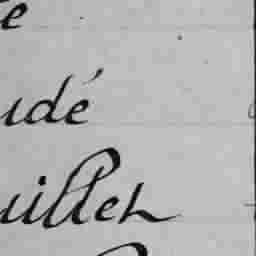 e
udé
uillet